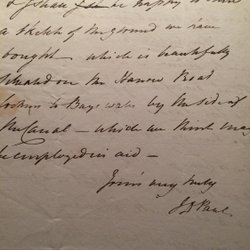 I shall be happy to
a sketch of the ground we have
bought – which is thankfully
situated on the Harrow Road
to Bayswater by the side of
the Canal – which we think may
be employed in aid –
Yours very truly
J D Paul